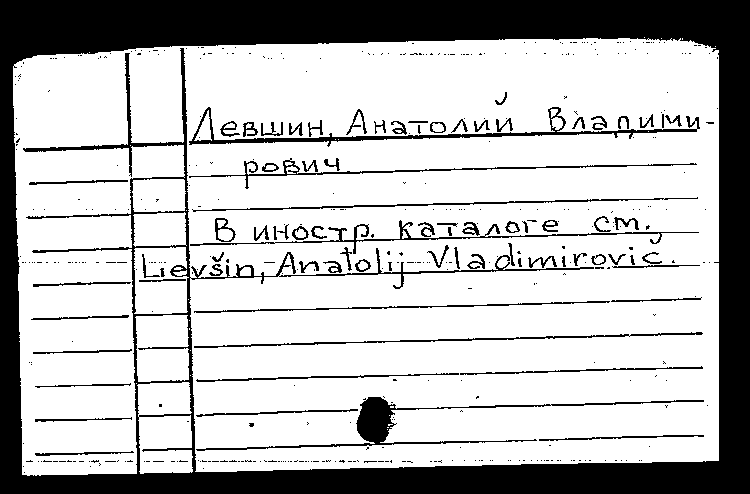 Левшин, Анатолий Владими-
рович
В иностр. каталоге см.
Lievšin, Anatolij Vladimirovič.